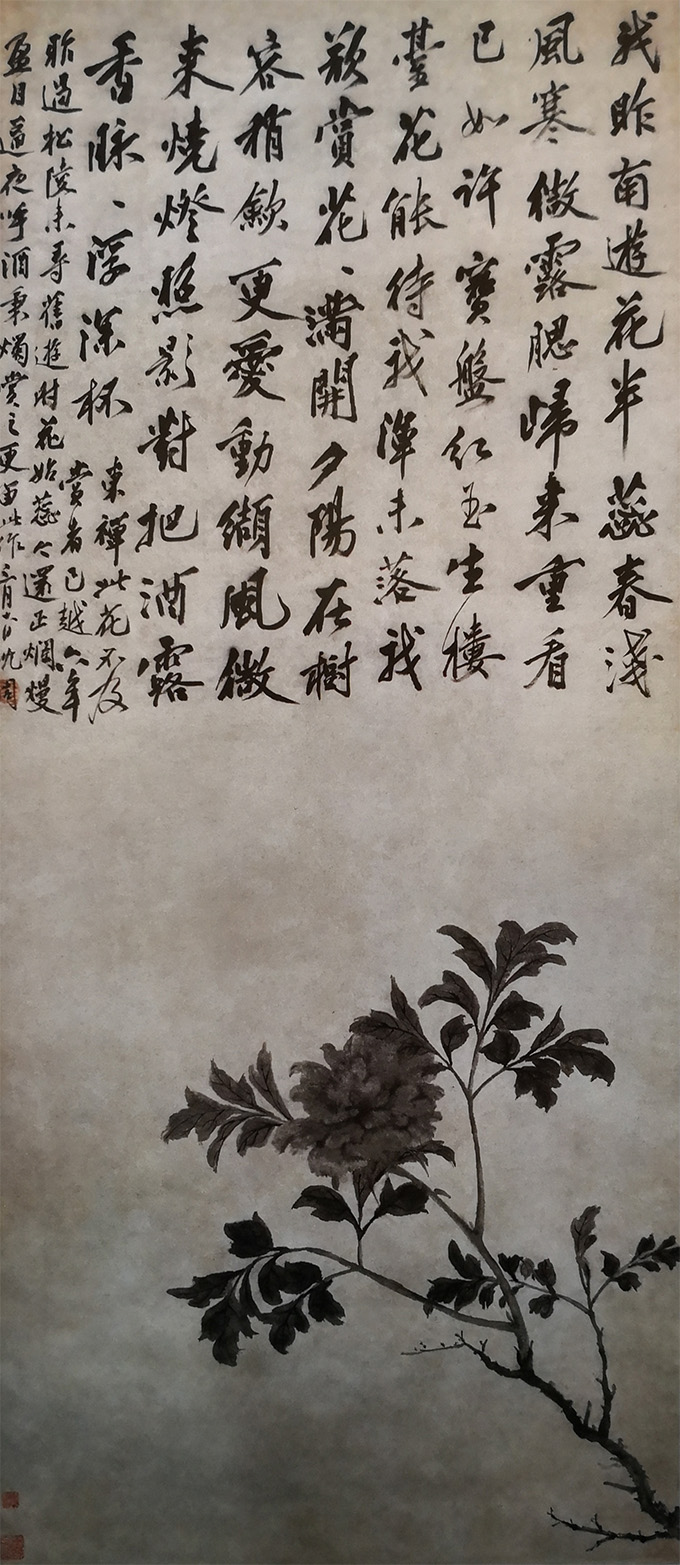 我昨南遊花半蕊春淺
風寒微露腮歸来重看
已如許寶盤紅玉生樓
臺花能待我渾未落我
欲賞花、滿開夕陽在樹
容稍歛更愛動纈風微
来燒燈照影對把酒露
香脉、浮深杯
東禪此花不及
賞者已越六年
昨過松陵未尋舊遊时花始蕊今還正爛熳
盈目遂夜呼酒秉燭賞之更留此作三月十日沈周